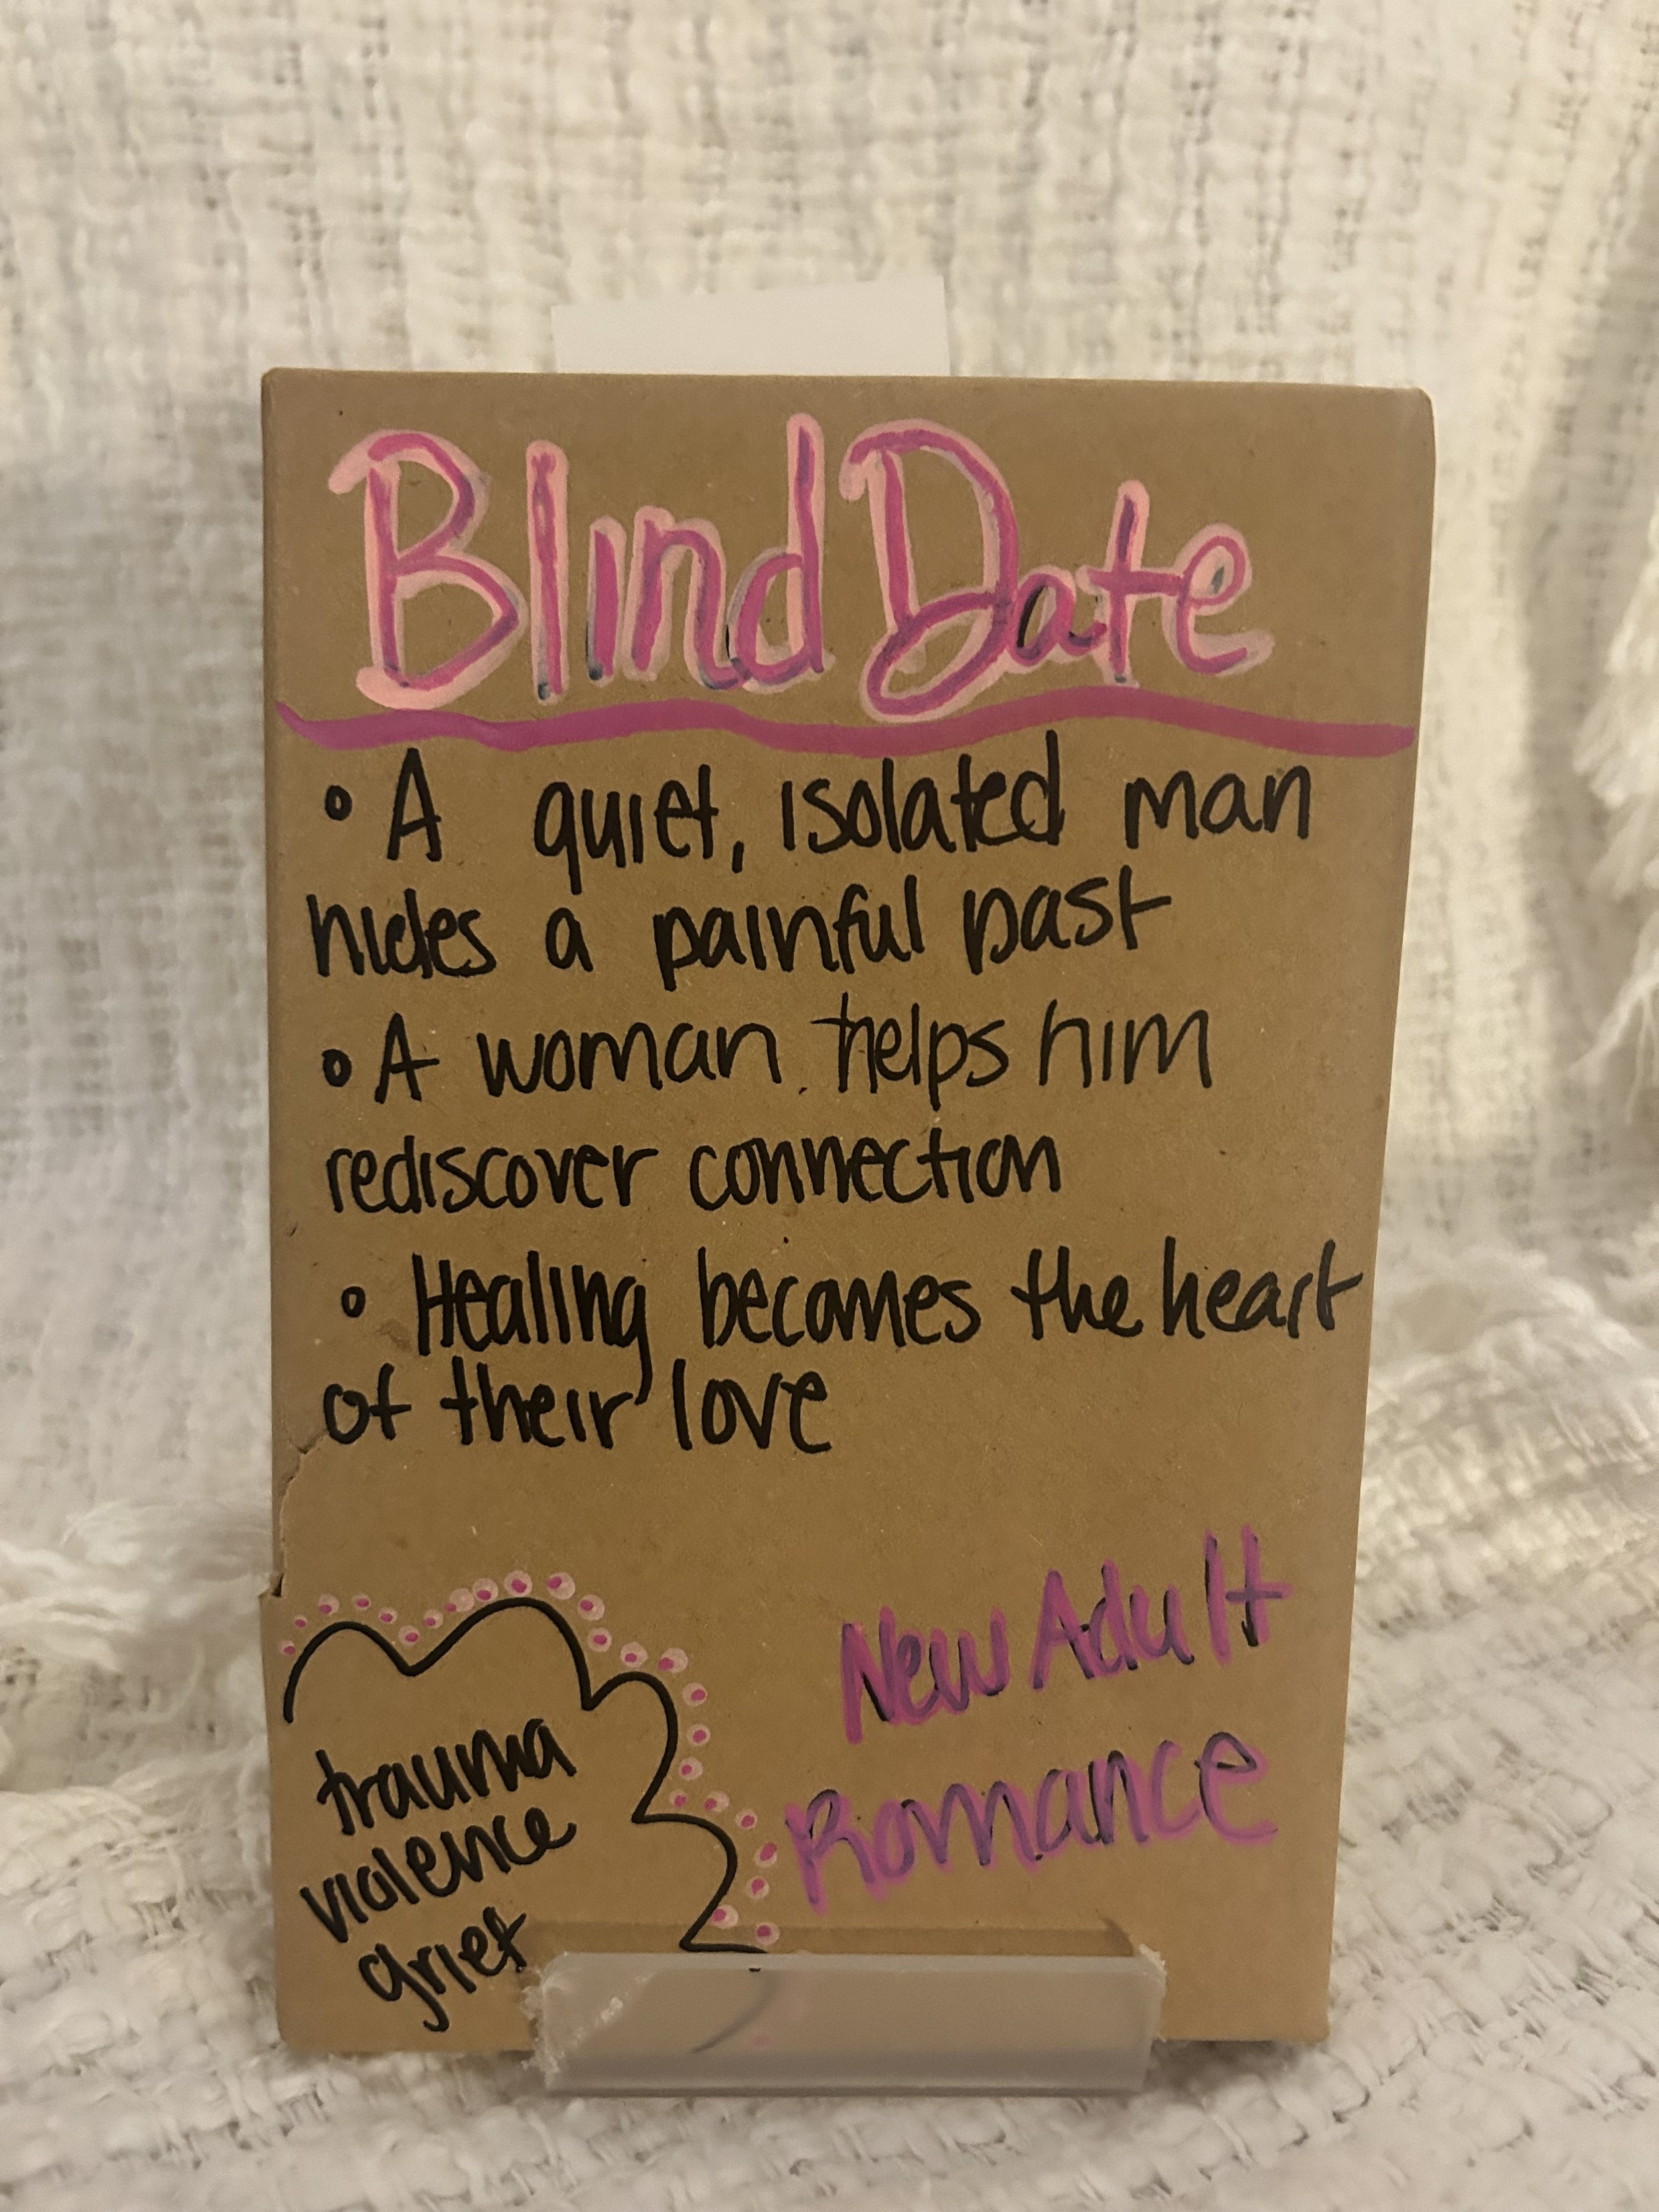 Blind Date
• A quiet, isolated man
hides a painful past
• A woman helps him
rediscover connection
• Healing becomes the heart
of their love
New Adult
Romance
trauma
violence
grief